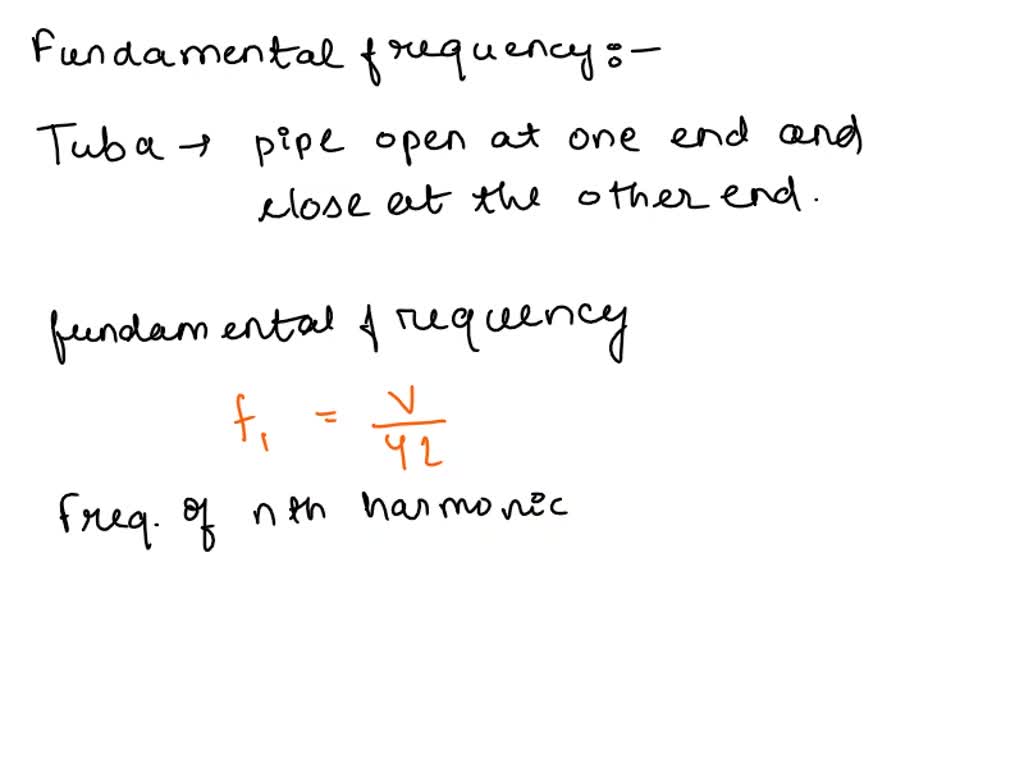 Fundamental frequency:-
Tuba → pipe open at one end and
close at the other end.
fundamental frequency
f₁ = V/4L
Freq. of nth harmonic